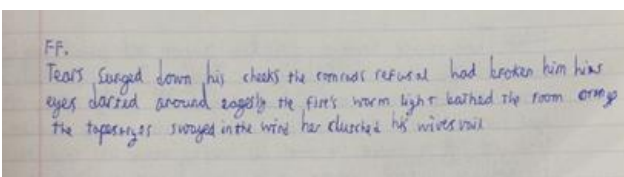 FF.
Tears surged down his cheeks the comrads refusal had broken him hins
eyes darted around eagesly the fire's worm light bathed the room orang
the tapestryes swayed in the wind her clutched his wives vail